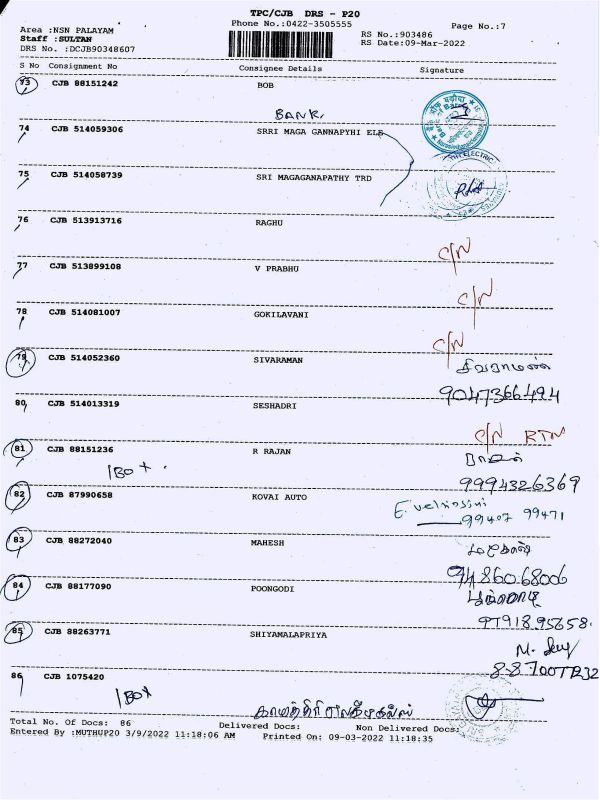 TPC/CJB DRS - P20
Phone No.:0422-3505555
Page No.:7
Area :NSN PALAYAM
Staff :SULTAN
DRS No. :DCJB90348607
RS No.:903486
RS Date:09-Mar-2022
S No Consignment No Consignee Details Signature
73 CJB 88151242 BOB
BANK
74 CJB 514059306 SRRI MAGA GANNAPYHI ELE
75 CJB 514058739 SRI MAGAGANAPATHY TRD
76 CJB 513913716 RAGHU
C/N
77 CJB 513899108 V PRABHU
C/N
78 CJB 514081007 GOKILAVANI
C/N
79 CJB 514052360 SIVARAMAN
சிவராமன்
9047366494
80 CJB 514013319 SESHADRI
C/N RTN
81 CJB 88151236 R RAJAN
1 BOX
9994326369
82 CJB 87990658 KOVAI AUTO
99407 99471
83 CJB 88272040 MAHESH
9486068006
84 CJB 88177090 POONGODI
9791895658
85 CJB 88263771 SHIYAMALAPRIYA
86 CJB 1075420
1 BOX
Total No. Of Docs: 86 Delivered Docs: Non Delivered Docs:
Entered By :MUTHUP20 3/9/2022 11:18:06 AM Printed On: 09-03-2022 11:18:35